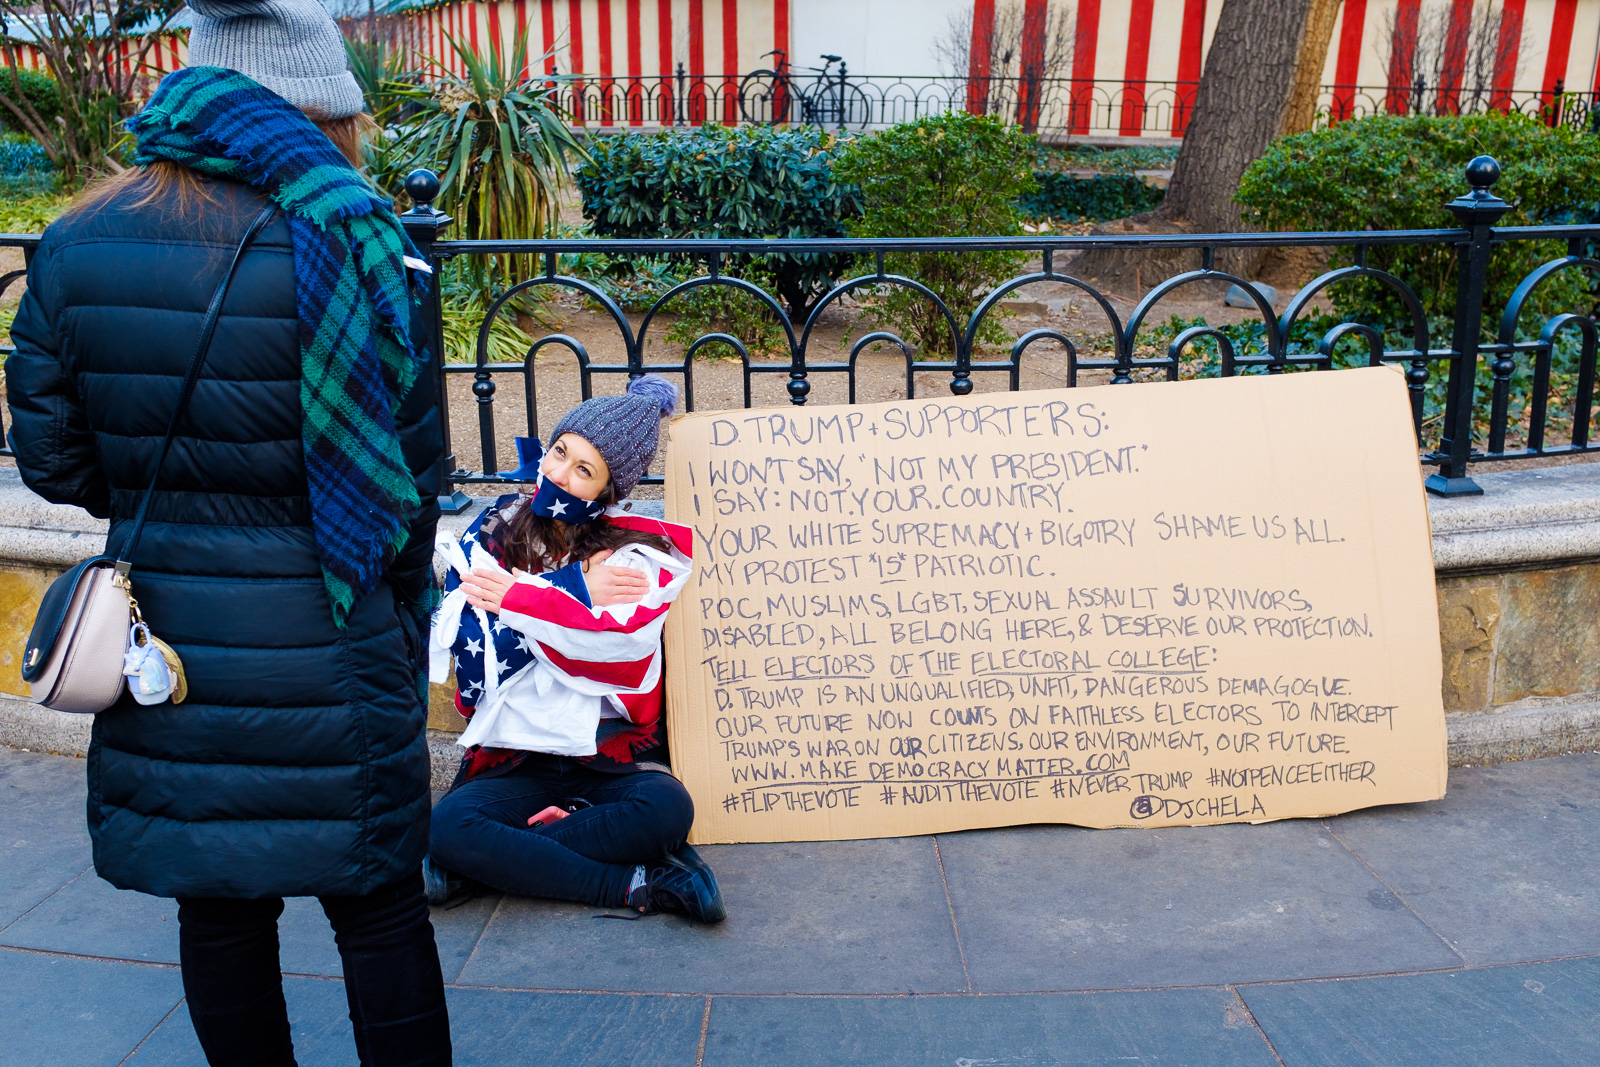 D. TRUMP + SUPPORTERS:
I WON'T SAY, "NOT MY PRESIDENT."
I SAY: NOT.YOUR.COUNTRY.
YOUR WHITE SUPREMACY + BIGOTRY SHAME US ALL.
MY PROTEST *IS* PATRIOTIC.
POC, MUSLIMS, LGBT, SEXUAL ASSAULT SURVIVORS,
DISABLED, ALL BELONG HERE, & DESERVE OUR PROTECTION.
TELL ELECTORS OF THE ELECTORAL COLLEGE:
D. TRUMP IS AN UNQUALIFIED, UNFIT, DANGEROUS DEMAGOGUE.
OUR FUTURE NOW COUNTS ON FAITHLESS ELECTORS TO INTERCEPT
TRUMP'S WAR ON OUR CITIZENS, OUR ENVIRONMENT, OUR FUTURE.
WWW.MAKEDEMOCRACYMATTER.COM
#FLIPTHEVOTE #AUDITTHEVOTE #NEVERTRUMP #NOTPENCEEITHER
@DJCHELA